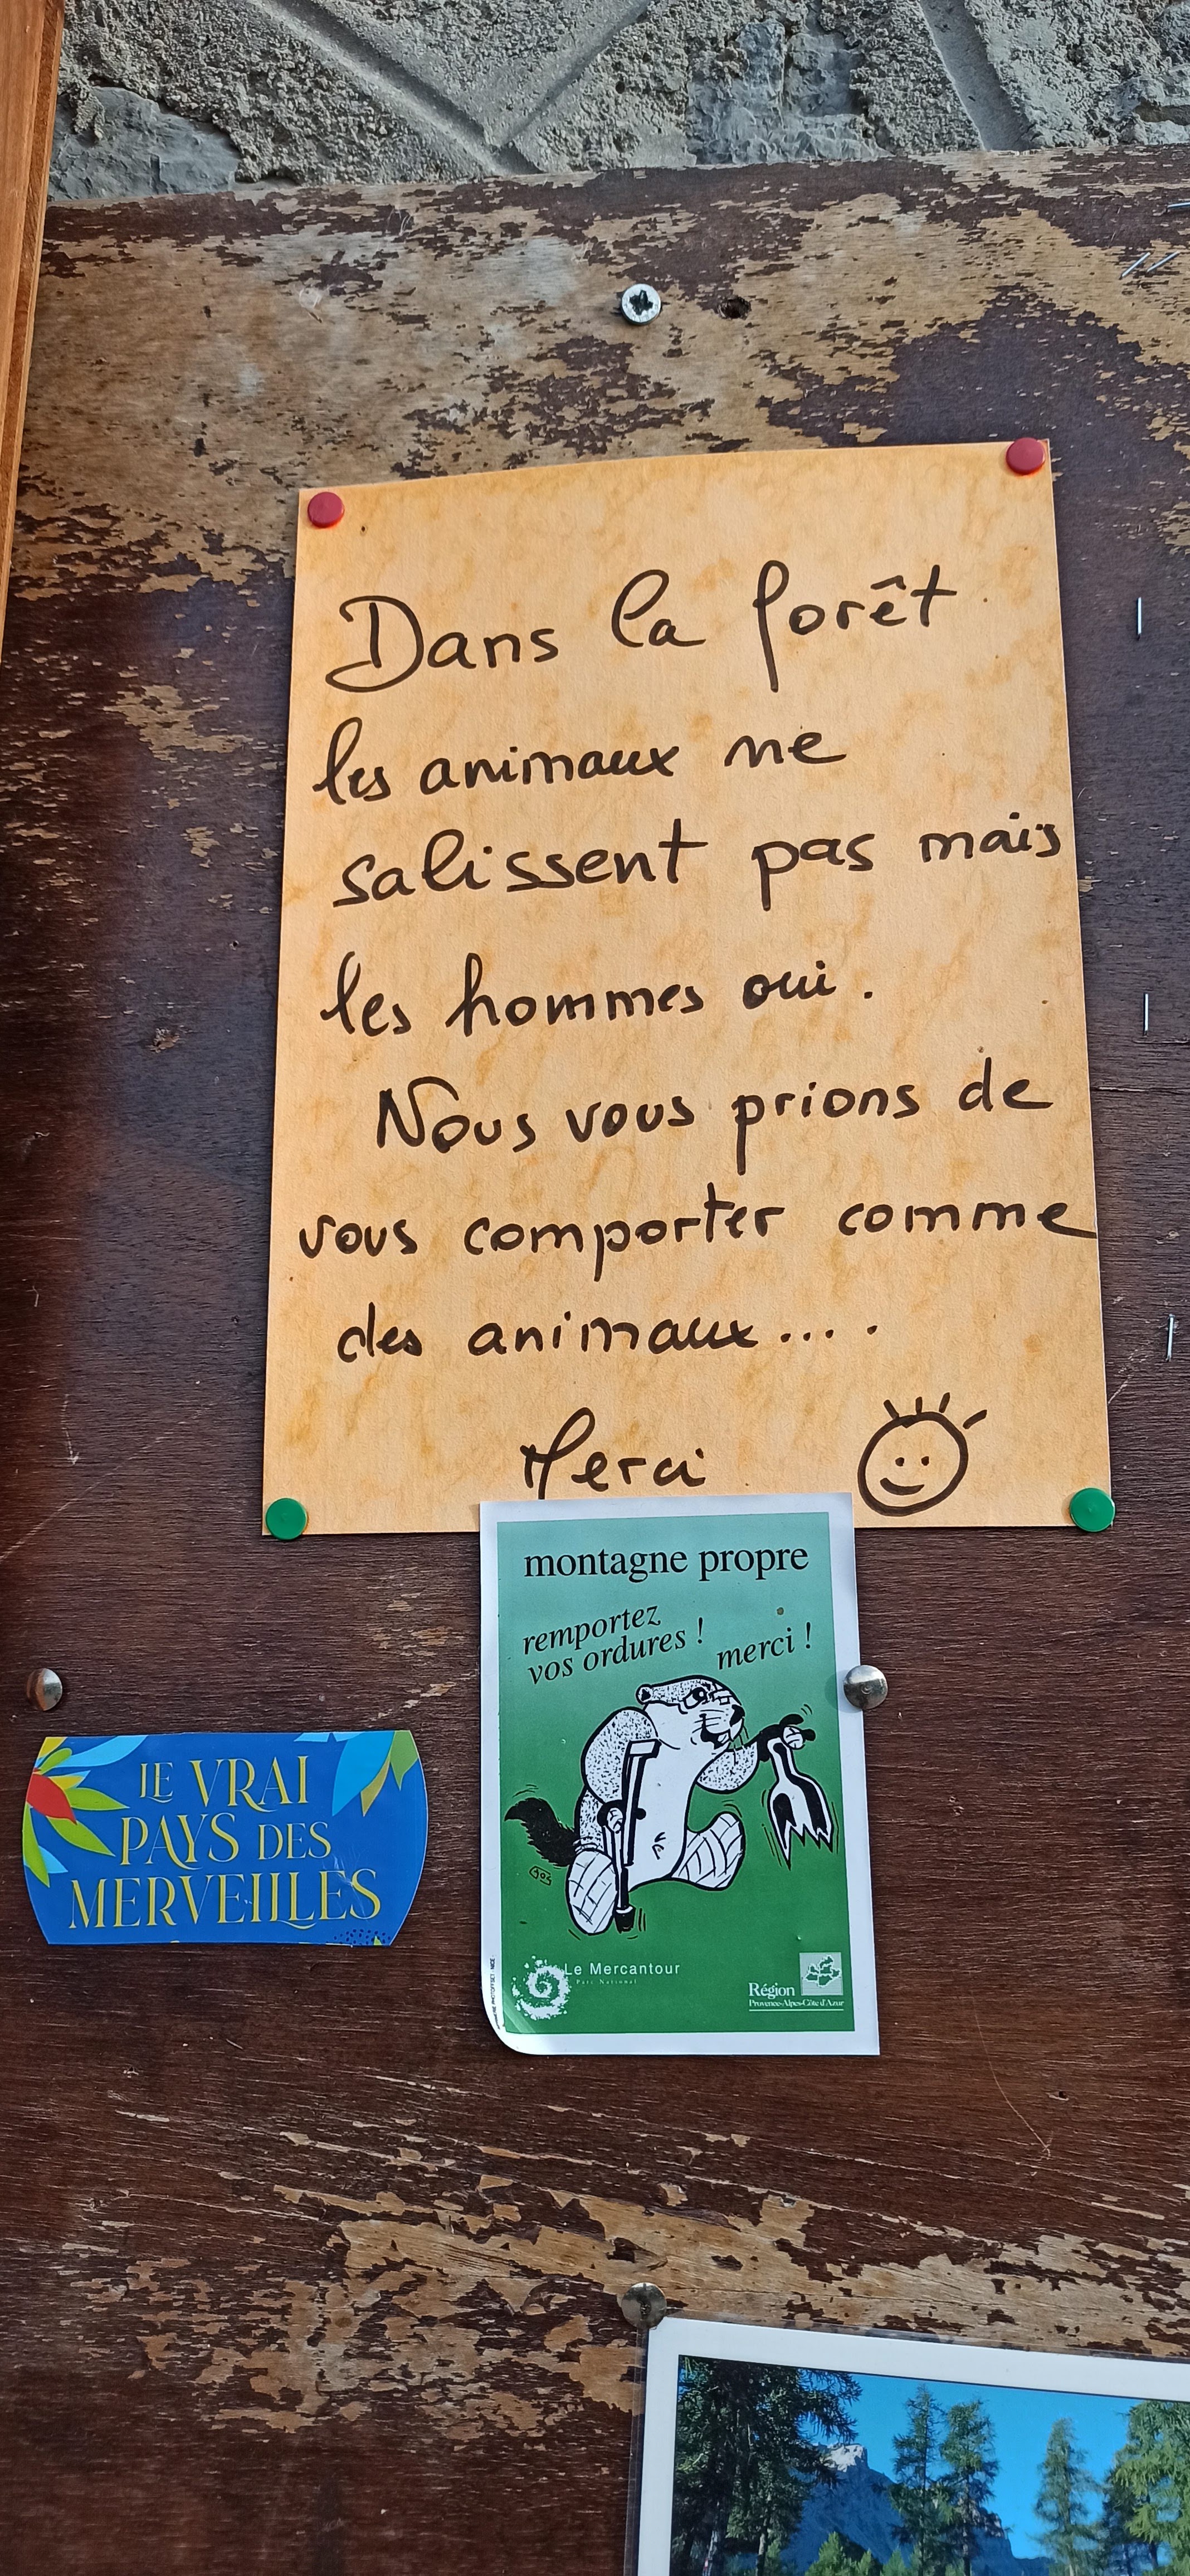 Dans la forêt
les animaux ne
salissent pas mais
les hommes oui.
Nous vous prions de
vous comporter comme
des animaux....
Merci
montagne propre
remportez
vos ordures !
merci !
LE VRAI
PAYS DES
MERVEILLES
Le Mercantour
Parc National
Région
Provence-Alpes-Côte d'Azur